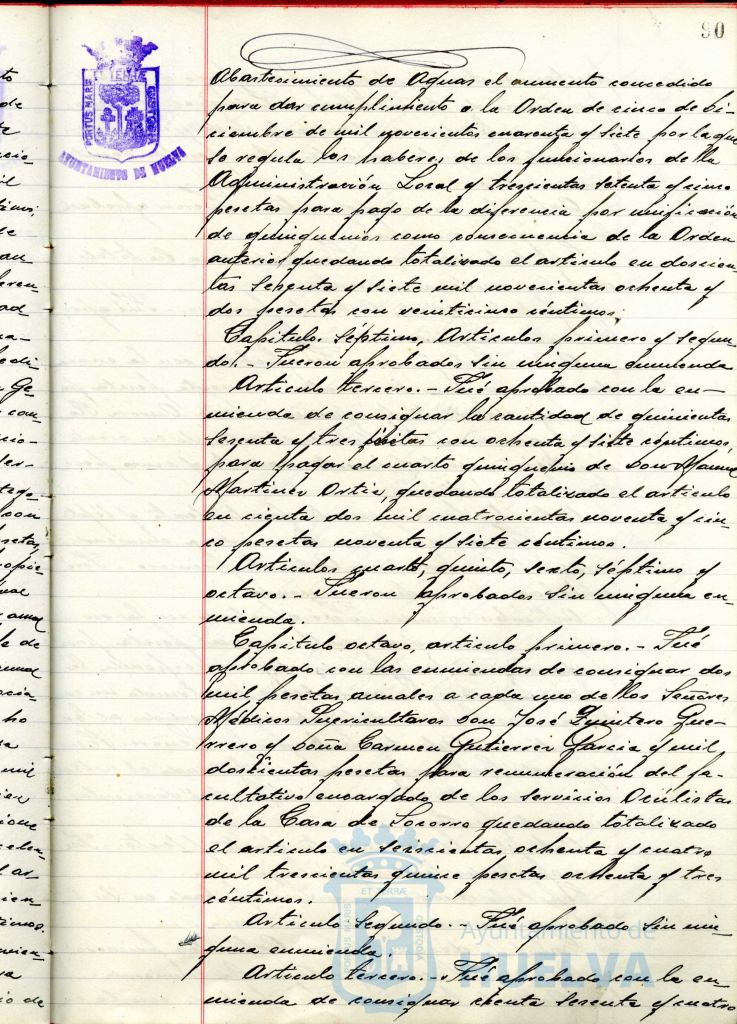 90
PORTUS MARIS ET TERRAE CUSTODIA
AYUNTAMIENTO DE HUELVA
Abastecimiento de Aguas el aumento concedido
para dar cumplimiento a la Orden de cinco de di-
ciembre de mil novecientos cuarenta y siete por la que
se regula los haberes de los funcionarios de la
Administración Local y trescientas setenta y cinco
pesetas para pago de la diferencia por unificación
de quinquenios como consecuencia de la Orden
anterior quedando totalizado el artículo en doscien-
tas sesenta y siete mil novecientas ochenta y
dos pesetas con veinticinco céntimos.
Capítulo. Séptimo, Artículos primero y segun-
do.- Fueron aprobados sin ninguna enmienda
Artículo tercero.- Fué aprobado con la en-
mienda de consignar la cantidad de quinientas
sesenta y tres pesetas con ochenta y siete céntimos,
para pagar el cuarto quinquenio de don Manuel
Martínez Ortiz, quedando totalizado el artículo
en cienta dos mil cuatrocientas noventa y cin-
co pesetas noventa y siete céntimos.
Artículos cuarto, quinto, sexto, séptimo y
octavo.- Fueron aprobados sin ninguna en-
mienda.
Capítulo octavo, artículo primero.- Fué
aprobado con las enmiendas de consignar dos
mil pesetas anuales a cada uno de llos Señores
Médicos Puericultores don José Quintero Gue-
rrero y doña Carmen Gutierrez García y mil
doscientas pesetas para remuneración del fa-
cultativo encargado de los servicios Oculistas
de la Casa de Socorro quedando totalizado
el artículo en seiscientas ochenta y cuatro
mil trescientas quince pesetas ochenta y tres
céntimos.
Artículo segundo.- Fué aprobado sin nin-
guna enmienda.
Artículo tercero.- Fué aprobado con la en-
mienda de consignar cienta sesenta y cuatro
Ayuntamiento de
HUELVA